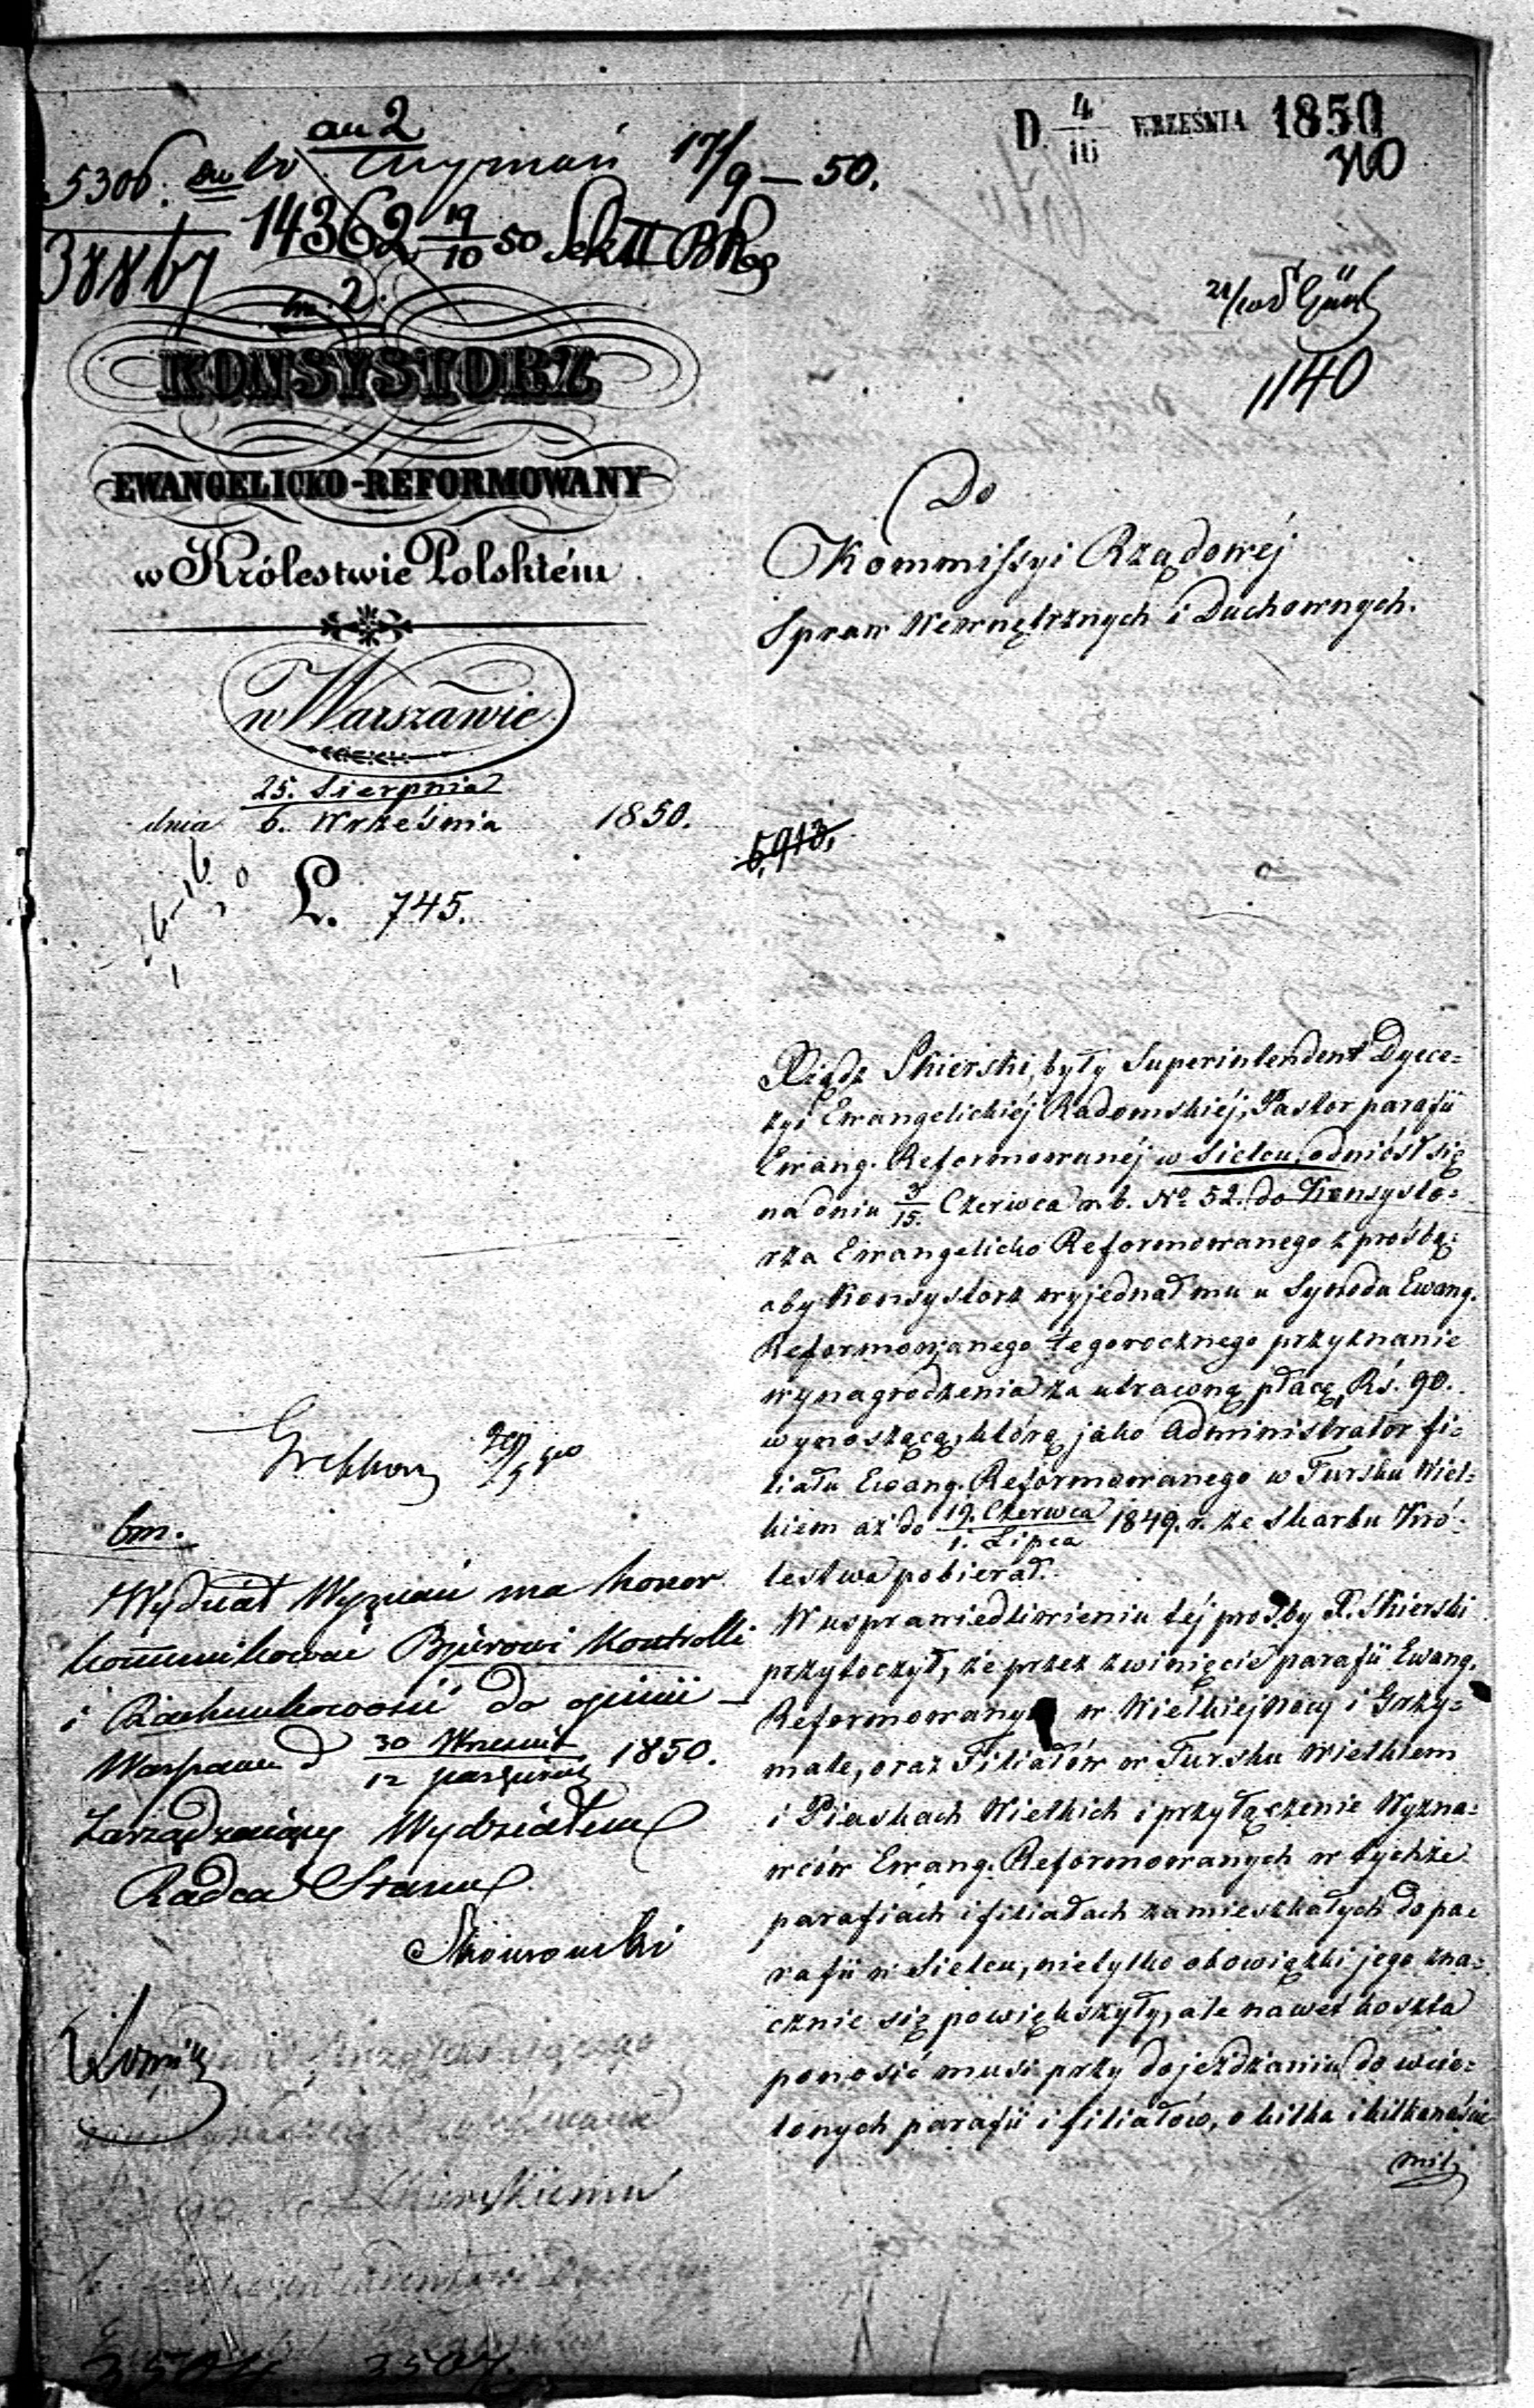 D. 4/16 WRZEŚNIA 1850
310
an 2
5306. Wyznań 17/9 – 50.
14362 19/10 50 Sek II
38867
bm. 2.
1140
KONSYSTORZ
EWANGELICKO-REFORMOWANY
w Królestwie Polskiém
w Warszawie
dnia 25. Sierpnia / 6. Września 1850.
L. 745.
Do
Kommissyi Rządowéj
Spraw Wewnętrznych i Duchownych.
5,913.
Xiądz Skierski, były Superintendent Dyece-
zyi Ewangelickiéj Radomskiéj, Pastor parafii
Ewang. Reformowanéj w Sielcu, odniósł się
na dniu 3/15. Czerwca r. b. No 52. do Konsysto-
rza Ewangelicko Reformowanego z prośbą:
aby Konsystorz wyjednał mu u Synodu Ewang.
Reformowanego tegorocznego przyznanie
wynagrodzenia za utraconą płacę, Rś. 90.
wynoszącą, którą jako Administrator fi-
liału Ewang. Reformowanego w Tursku Wiel-
kiem aż do 19. Czerwca / 1. Lipca 1849. r. ze Skarbu Kró-
lestwa pobierał.
W usprawiedliwieniu téj prośby X. Skierski
przytoczył, że przez zwinięcie parafii Ewang.
Reformowanych w Wielkiejnocy i Grzy-
male, oraz Filiałów w Tursku Wielkiem
i Piaskach Wielkich i przyłączenie Wyzna-
wców Ewang. Reformowanych w tychże
parafiach i filiałach zamieszkałych do pa-
rafii w Sielcu, nietylko obowiązki jego zna-
cznie się powiększyły, ale nawet koszta
ponosić musi przy dojeżdżaniu do wcie-
lonych parafii i filiałów, o kilka i kilkanaście
mil,
bm.
Wydział Wyznań ma honor
kommunikować Bjurowi Kontrolli
i Rachunkowości do opinii –
Warszawa d 30 Września / 12 Paźdz. 1850.
Zarządzający Wydziałem
Radca Stanu
Skierskiemu
3507.